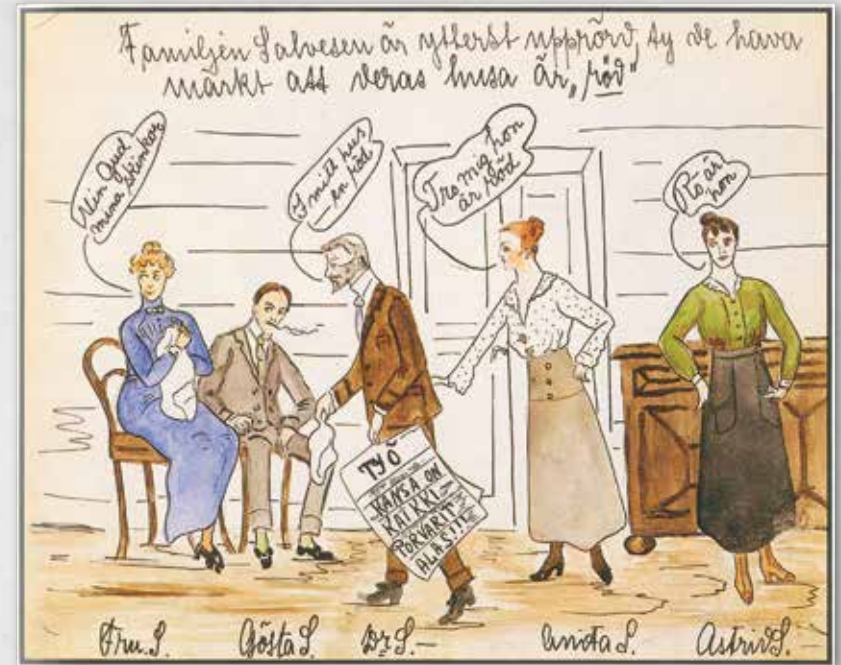 Familjen Salvesen är ytterst upprörd, ty de hava
märkt att deras husa är „röd"
Min Gud
mina skinkor
I mitt hus
– en röd
Tro mig hon
är röd
Rö är
hon
TYÖ
KANSA ON
KAIKKI
PORVARIT
ALAS!!!
Fru. S.
Gösta S.
Dr S.–
Anita S.
Astrid S.–